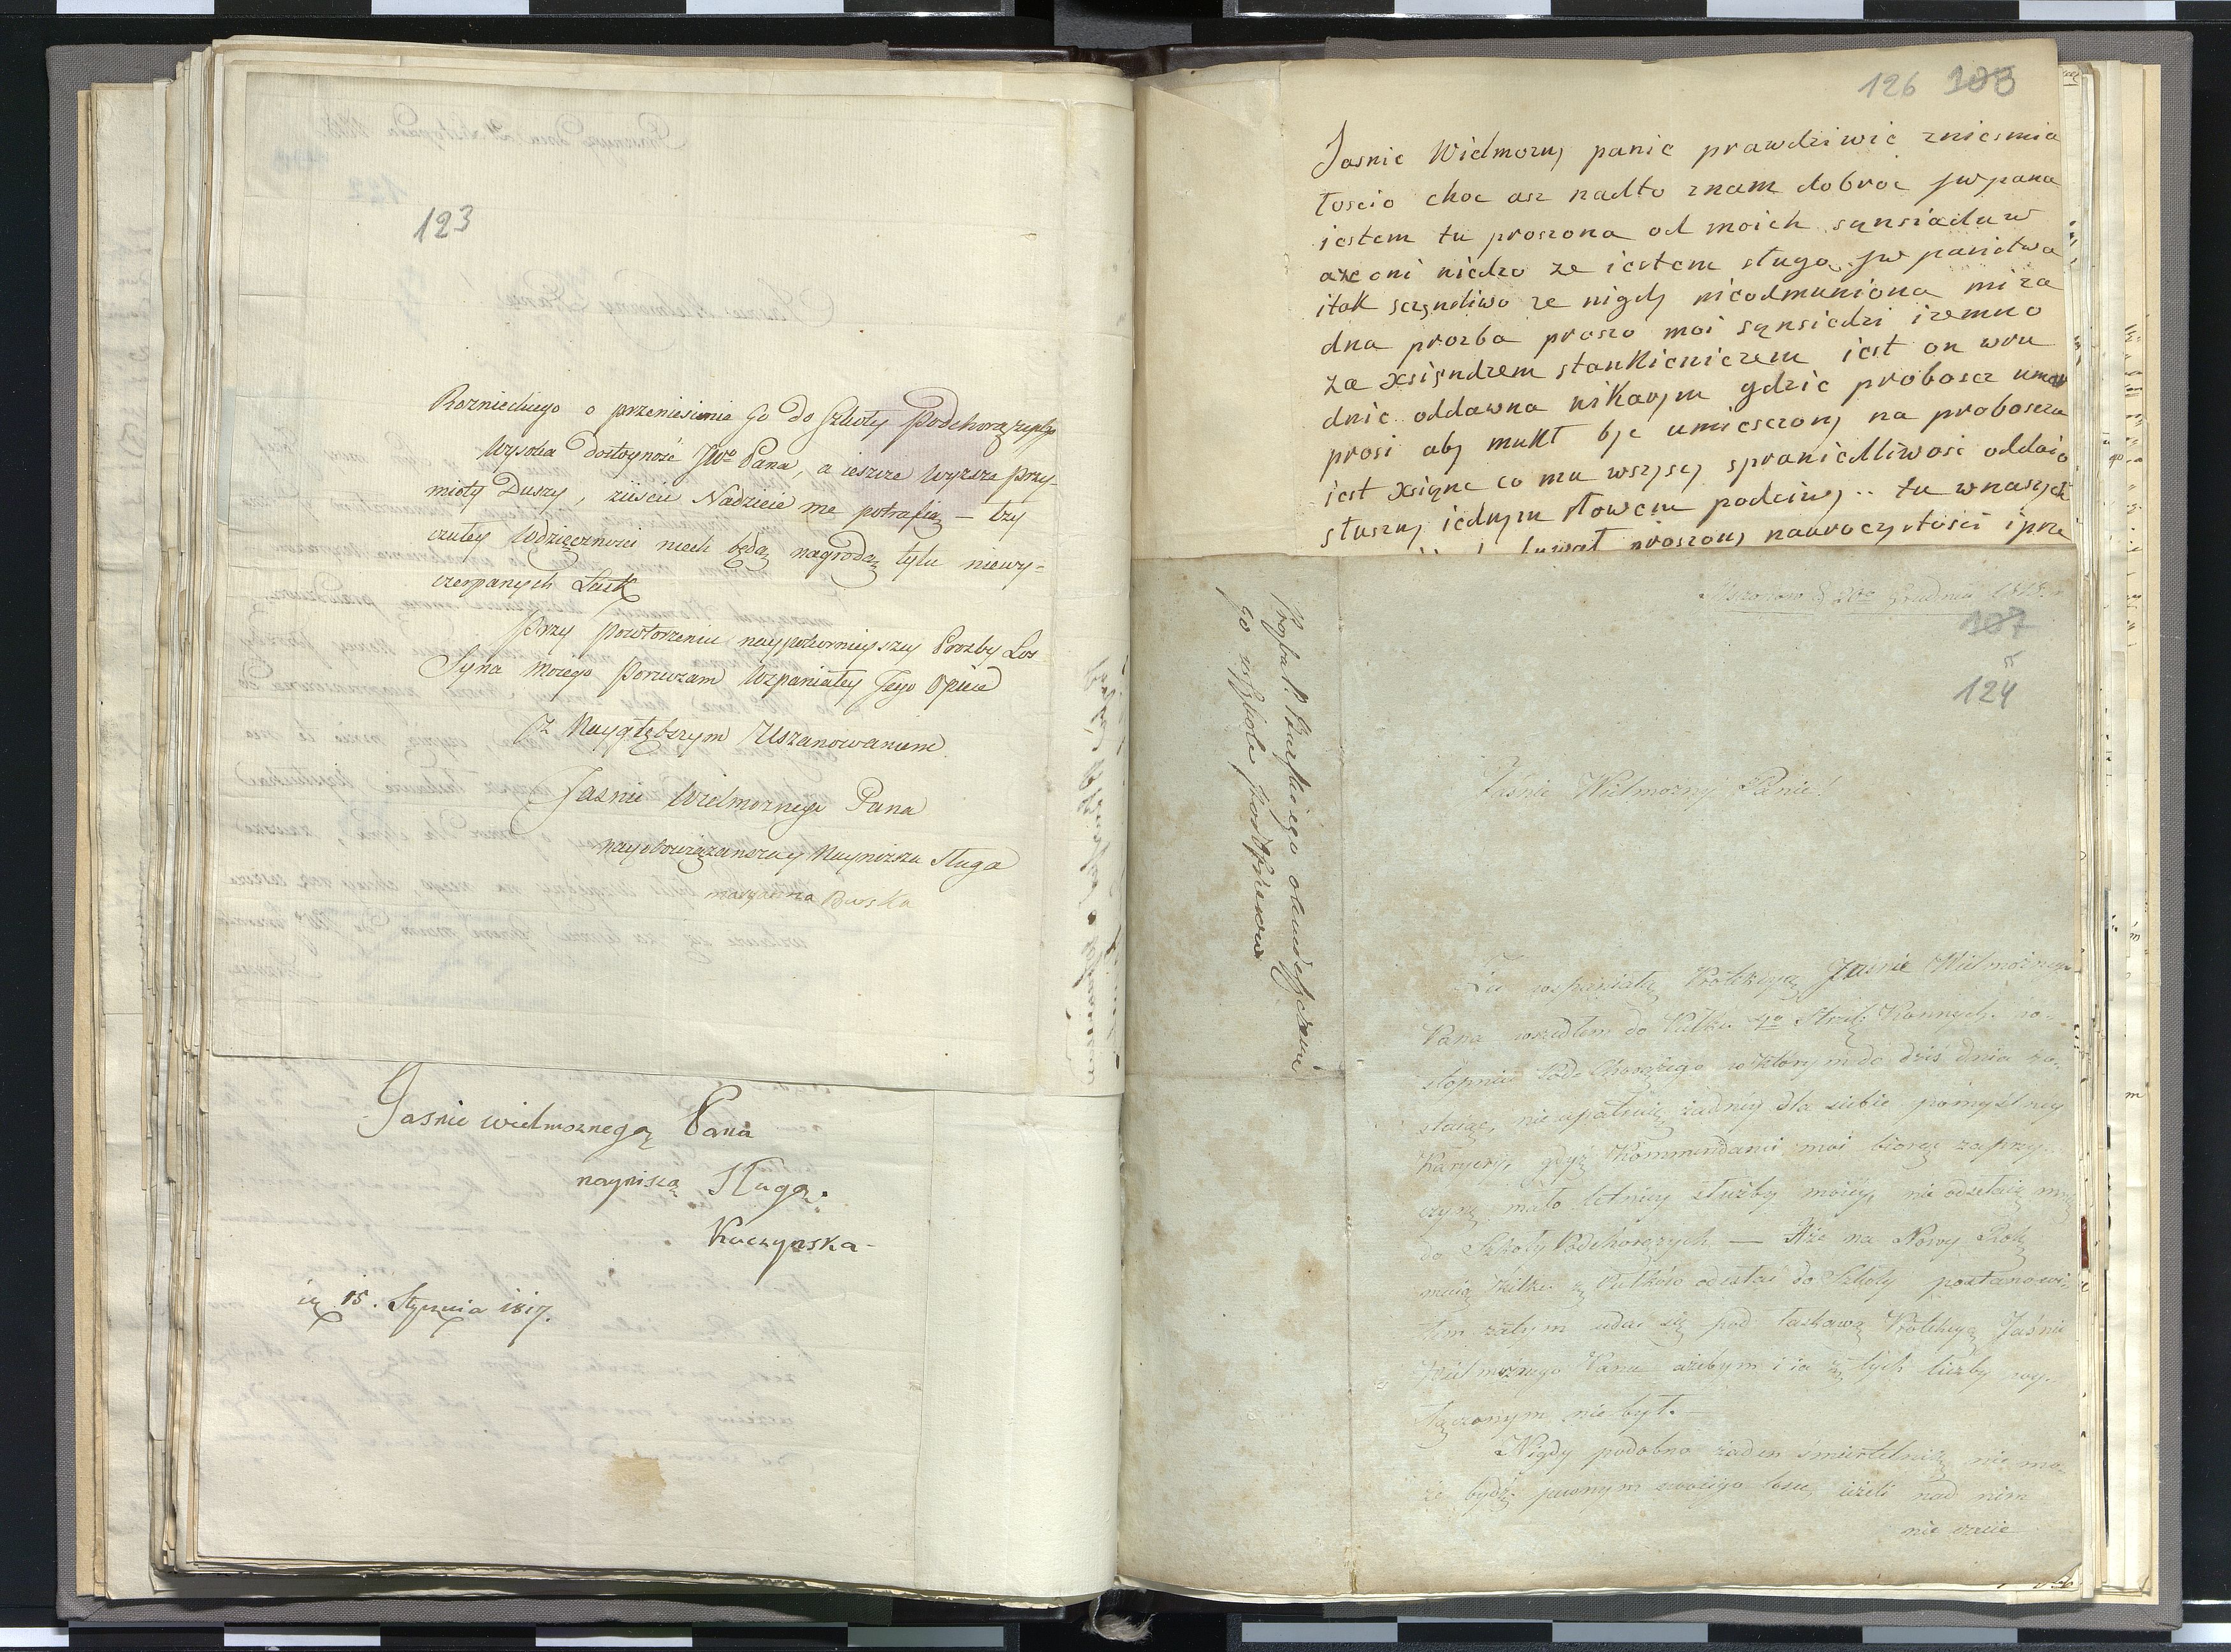 123
Roznieckiego o przeniesienie Go do Szkoły Podchorążych
Wysoka Dostoyność JWo Pana, a ieszcze Wyższe przy-
mioty Duszy, ziiście Nadzieie me potrafią — łzy
czułey Wdzięcznosci niech będą nagrodą tylu niewy=
czerpanych Łask
Przy powtorzeniu naypokornieyszey Prozby Los
Syna Moiego Poruczam Wzpaniałey Jego Opiece
Z Naygłębszym Uszanowaniem
Jasnie Wielmoznego Pana
nayobowiązanszey Naynizsza Sługa
maryanna Burska
Jasnie wielmoznegą Pana
nayniszą Sługą.
Kuczynska-
15. Stycznia 1817.
126 103
Jasnie Widmozny panie prawdziwie zniesmia
łoscio choc asz nadto znam dobroc jw pana
iestem tu proszona od moich sųnsiaduw
aze oni niedzo ze iestem sługo jw panstwa
itak sczęndliwo ze nigdy nieodmuniona mi za
dna prozba proszo moi sųnsiedzi izemno
za xsięndzem stankieniczem iest on wru
dnie oddawna nikarym gdzie probosez umar
prosi aby mukł byc umiesczony na probosza
iest xsiąne co mu wszyscy spraniedliwosc oddaio
słuszny iednym słowem podciwy .. tu wnaszych
bywał proszony nauroczystosci i prze
d 20o Grudnia 1818.
107
a
124
Jaśnie Wielmozny Panie!
Za wspaniałą Protekcyą Jaśnie Wielmożnego
Pana wszedłem do Pułku 4o Strzel: Konnych. w sto-
stopniu Pod-Chorążego w którym do dziś dnia zo-
staiąc, nie upatruię żadney dla siebie pomyślney
Karyery, gdyż Kommendanci moi biorąc zaprzy-
czynę mało letniey służby moiey, nie odsełaią mnie
do Szkoły Podchorążych — Aże na Nowy Rok
maią Kilku z Pułków odesłać do Szkoły postanowi-
łem zatym udać się pod łaskawą Protekcyą Jaśnie
Wielmożnego Pana ażebym i ia z tych liczby wy-
łączonym nie był. —
Nigdy podobno żaden śmiertelnik nie mo-
że bydź pewnym swoiego losu, ieżeli nad nim
nie
Prozba P. Burskiego o umieszczenie
go w szkole podchorążych